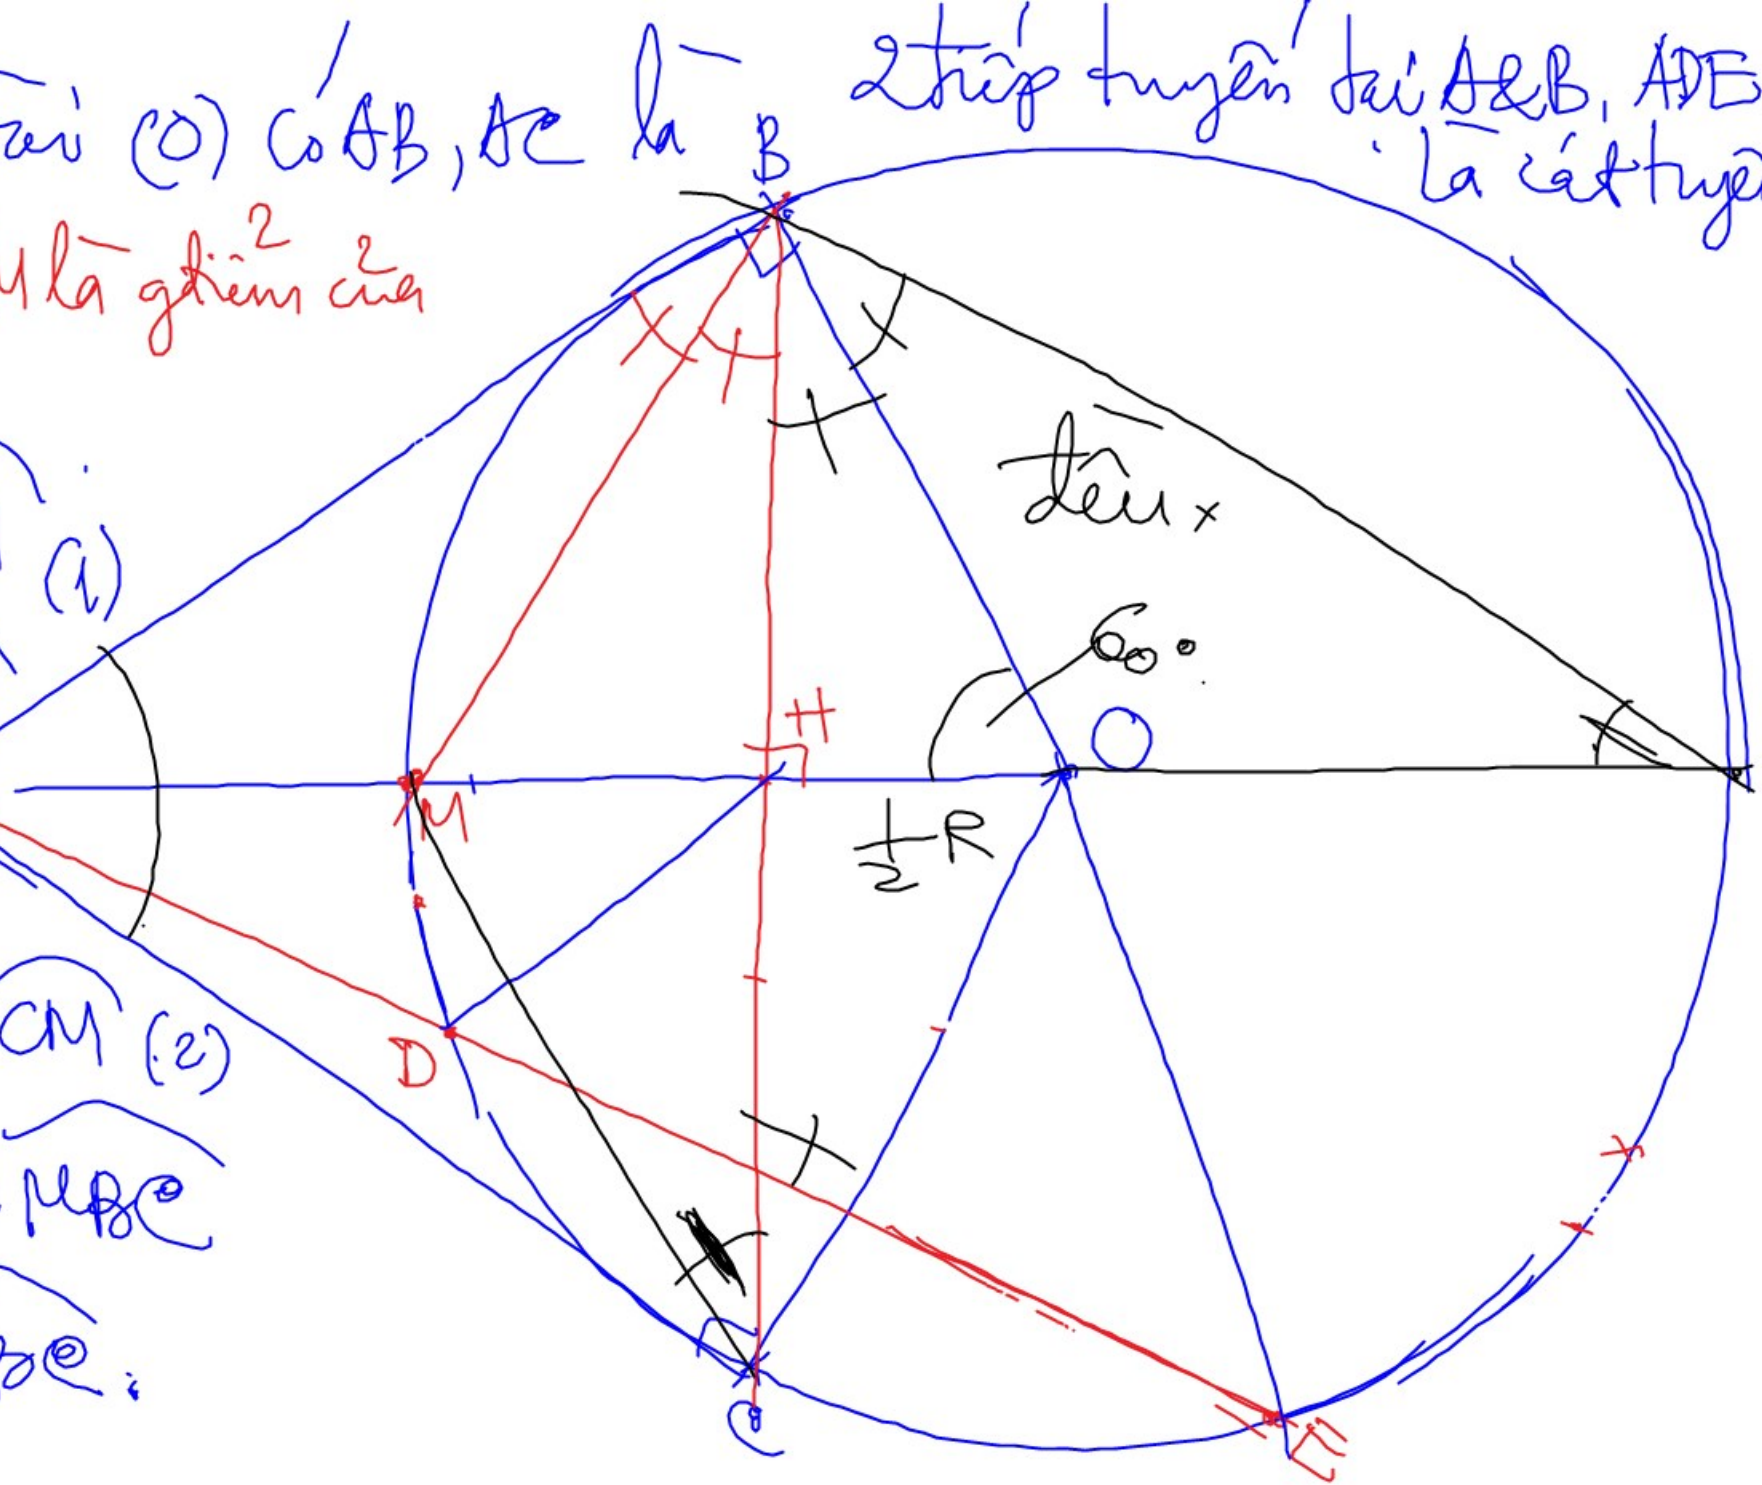 (O) có AB, AC là 2 tiếp tuyến tại A&B, ADE
là cát tuyế
M là gđiểm của
B
(1)
đều x
60°
H
O
M
½R
CM (2)
D
MBC
C
E